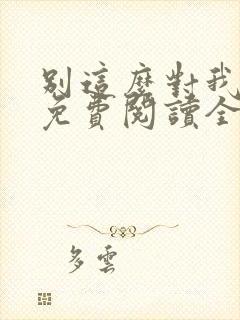 別這麼對我
免費閱讀全
多雲